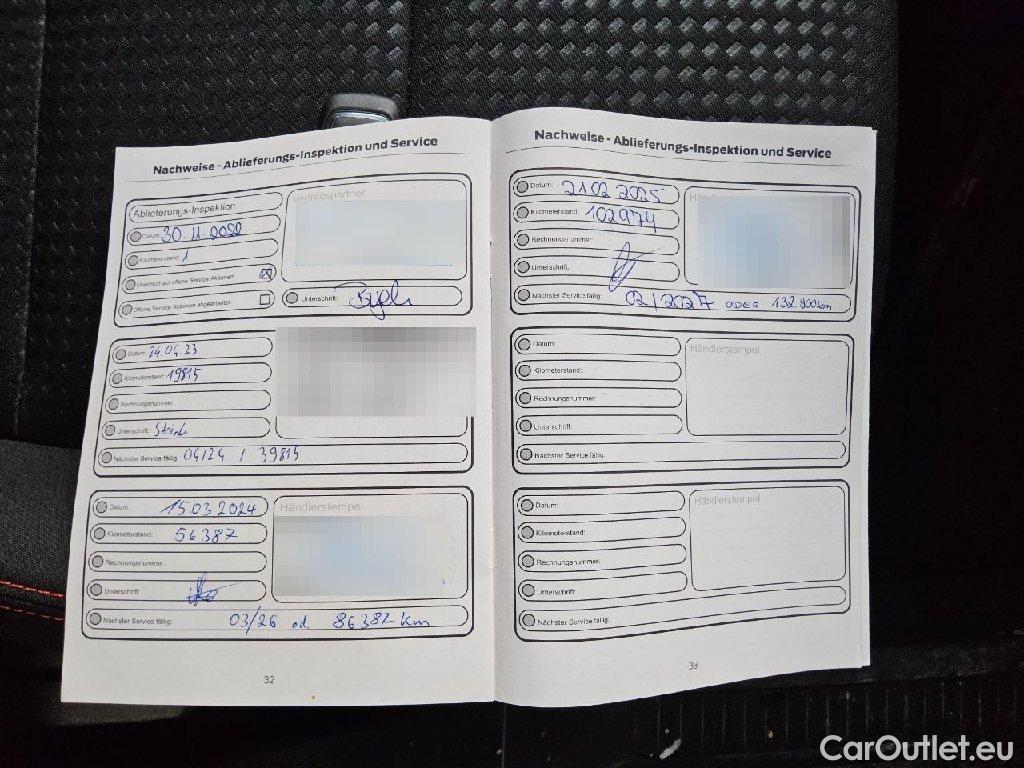 Nachweise - Ablieferungs-Inspektion und Service
Ablieferungs-Inspektion
Vertragspartner
Datum: 30.11.2022
Kilometerstand: 1
Überprüft auf offene Service Aktionen:
Offene Service Aktionen abgearbeitet:
Unterschrift:
Datum: 24.04.23
Kilometerstand: 19815
Rechnungsnummer:
Unterschrift:
Nächster Service fällig: 04/24 / 39815
Datum: 15.03.2024
Händlerstempel
Kilometerstand: 56387
Rechnungsnummer:
Unterschrift:
Nächster Service fällig: 03/26 od. 86387 km
32
Nachweise - Ablieferungs-Inspektion und Service
Datum: 21.02.2025
Kilometerstand: 102974
Rechnungsnummer:
Unterschrift:
Nächster Service fällig: 02/2027 ODER 132.900 km
Datum:
Händlerstempel
Kilometerstand:
Rechnungsnummer:
Unterschrift:
Nächster Service fällig:
Datum:
Händlerstempel
Kilometerstand:
Rechnungsnummer:
Unterschrift:
Nächster Service fällig:
33
CarOutlet.eu